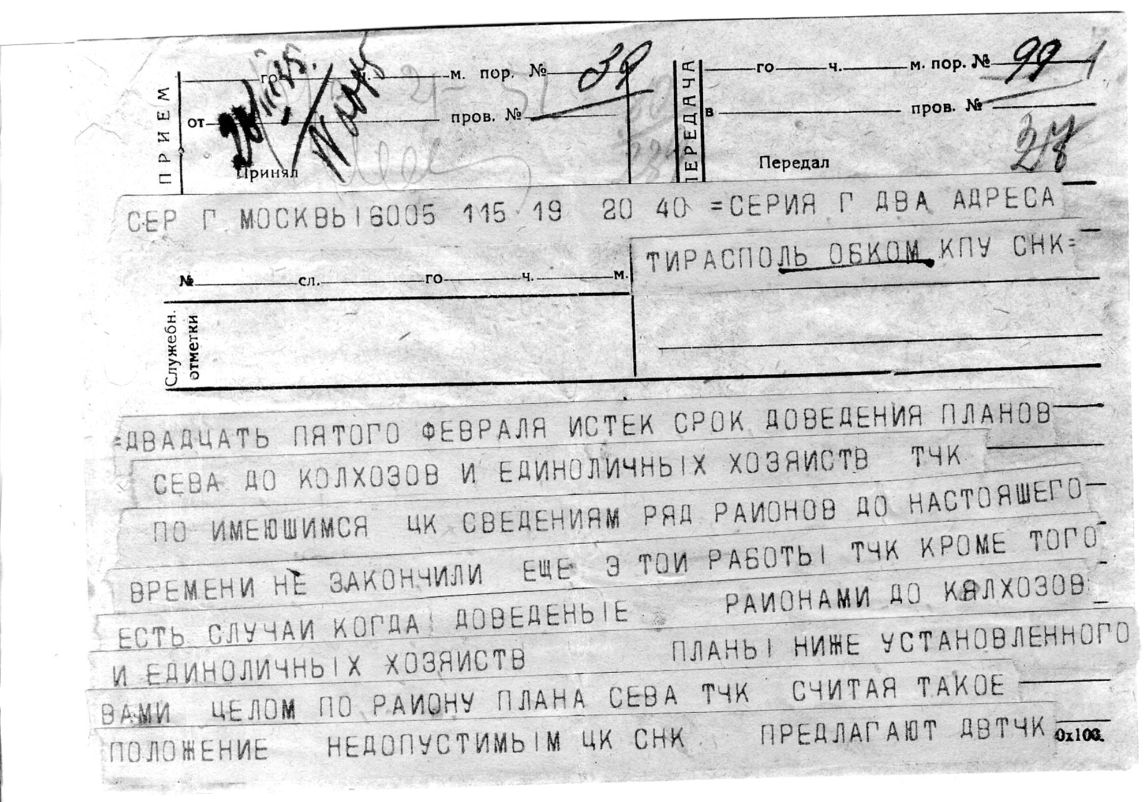 ПРИЕМ
го ч. м. пор. № 39
от пров. №
Принял
ПЕРЕДАЧА
го ч. м. пор. № 99
в пров. №
Передал
СЕР Г МОСКВЫ 6005 115 19 20 40 =СЕРИЯ Г ДВА АДРЕСА
ТИРАСПОЛЬ ОБКОМ КПУ СНК=
№ сл. го ч. м.
Служебн.
отметки
=ДВАДЦАТЬ ПЯТОГО ФЕВРАЛЯ ИСТЕК СРОК ДОВЕДЕНИЯ ПЛАНОВ
СЕВА ДО КОЛХОЗОВ И ЕДИНОЛИЧНЫХ ХОЗЯИСТВ ТЧК
ПО ИМЕЮШИМСЯ ЦК СВЕДЕНИЯМ РЯД РАИОНОВ ДО НАСТОЯШЕГО
ВРЕМЕНИ НЕ ЗАКОНЧИЛИ ЕЩЕ Э ТОИ РАБОТЫ ТЧК КРОМЕ ТОГО
ЕСТЬ СЛУЧАИ КОГДА ДОВЕДЕНЫЕ РАИОНАМИ ДО КОЛХОЗОВ
И ЕДИНОЛИЧНЫХ ХОЗЯИСТВ ПЛАНЫ НИЖЕ УСТАНОВЛЕННОГО
ВАМИ ЦЕЛОМ ПО РАИОНУ ПЛАНА СЕВА ТЧК СЧИТАЯ ТАКОЕ
ПОЛОЖЕНИЕ НЕДОПУСТИМЫМ ЦК СНК ПРЕДЛАГАЮТ ДВТЧК
0x100.